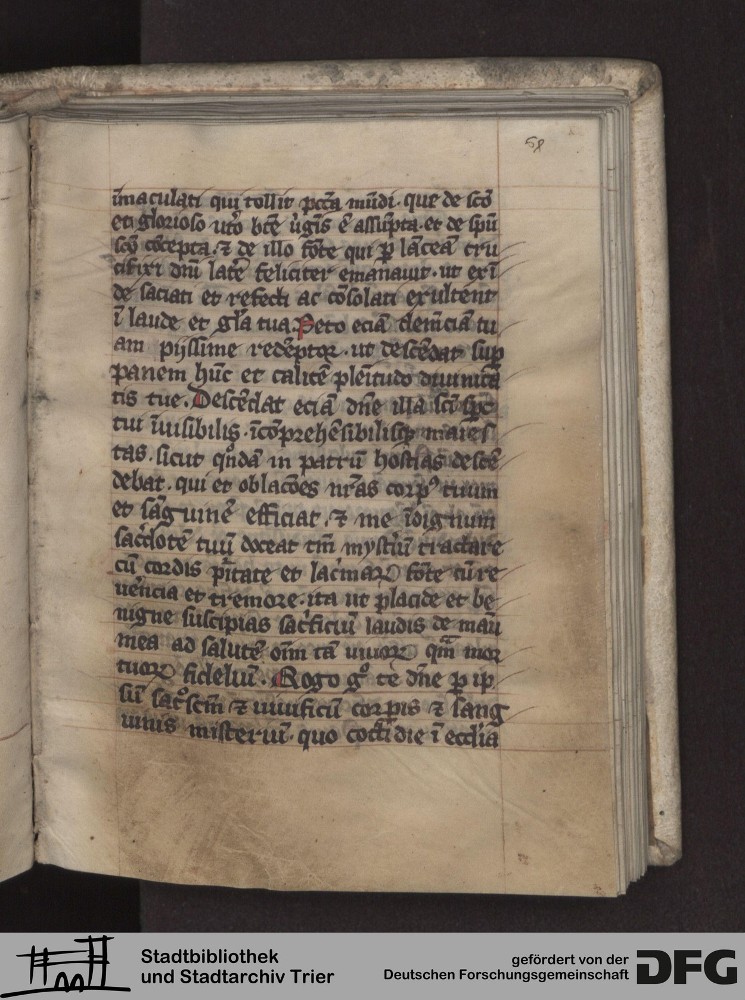 58
īmaculati qui tollit pctā mūdi. que de sctō
et glorioso utō btē ỽgīs ē assūpta. et de spū
scō cōcepta. ⁊ de illo fōte qui ꝑ lāceā cru
cifixi dnī latē feliciter emanauit. ut exī
de saciati et refecti ac cōsolati exultent
ī laude et glā tua. Peto eciā clemēciā tu
am pijssime redēptor. ut descēdat sup
panem hūc et calicē plēitudo diuinitā
tis tue. Descēdat eciā dn̄e illa scī spc̄
tui īuisibilis. īcōprehēsibilisqꝫ maies
tas. sicut qn̄dā in patrū hostias descē
debat. qui et oblacōes nr̄as corpꝰ tuum
et sāguinē efficiat. ⁊ me īdignum
sac̄dotē tuū doceat tm̄ mystiū tractare
cū cordis pītate et lac̄maꝝ fōte cū re
uēncia et tremore. ita ut placide et be
nigne suscipias sac̄ficiū laudis de manū
mea ad salutē oīm tā uiuoꝝ qm̄ mor
tuoꝝ fideliū. Rogo gͦ te dn̄e ꝑ ip
sū sac̄oscm̄ ⁊ uiuificū corpis ⁊ sang
uinis misteriū. quo cottidie ī eccl'ia
Stadtbibliothek
und Stadtarchiv Trier
gefördert von der
Deutschen Forschungsgemeinschaft
DFG